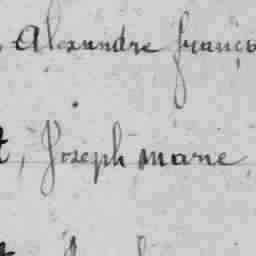 , Alexandre franço
, Joseph marie,